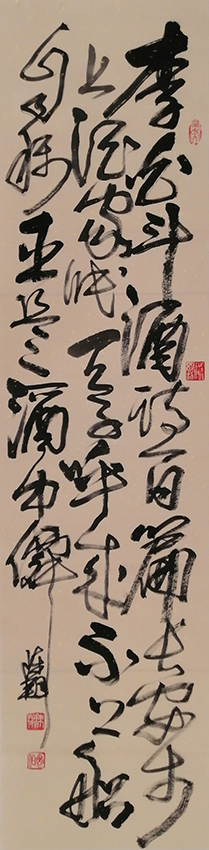 李白斗酒诗百篇长安市
上酒家眠天子呼来不上船
自称臣是酒中僊